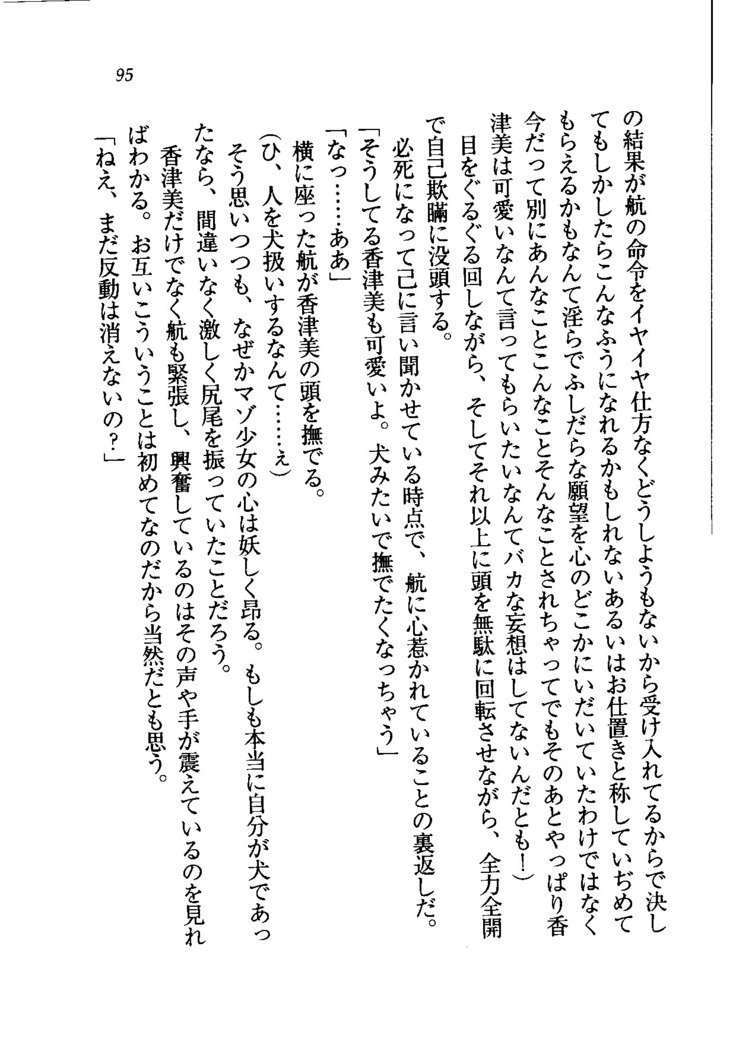 95
の結果が航の命令をイヤイヤ仕方なくどうしようもないから受け入れてるからで決し
てもしかしたらこんなふうになれるかもしれないあるいはお仕置きと称していぢめて
もらえるかもなんて淫らでふしだらな願望を心のどこかにいだいていたわけではなく
今だって別にあんなことこんなことそんなことされちゃってでもそのあとやっぱり香
津美は可愛いなんて言ってもらいたいなんてバカな妄想はしてないんだとも！）
目をぐるぐる回しながら、そしてそれ以上に頭を無駄に回転させながら、全力全開
で自己欺瞞に没頭する。
必死になって己に言い聞かせている時点で、航に心惹かれていることの裏返しだ。
「そうしてる香津美も可愛いよ。犬みたいで撫でたくなっちゃう」
「なっ……ああ」
横に座った航が香津美の頭を撫でる。
（ひ、人を犬扱いするなんて……ぇ）
そう思いつつも、なぜかマゾ少女の心は妖しく昂る。もしも本当に自分が犬であっ
たなら、間違いなく激しく尻尾を振っていたことだろう。
香津美だけでなく航も緊張し、興奮しているのはその声や手が震えているのを見れ
ばわかる。お互いこういうことは初めてなのだから当然だとも思う。
「ねえ、まだ反動は消えないの？」